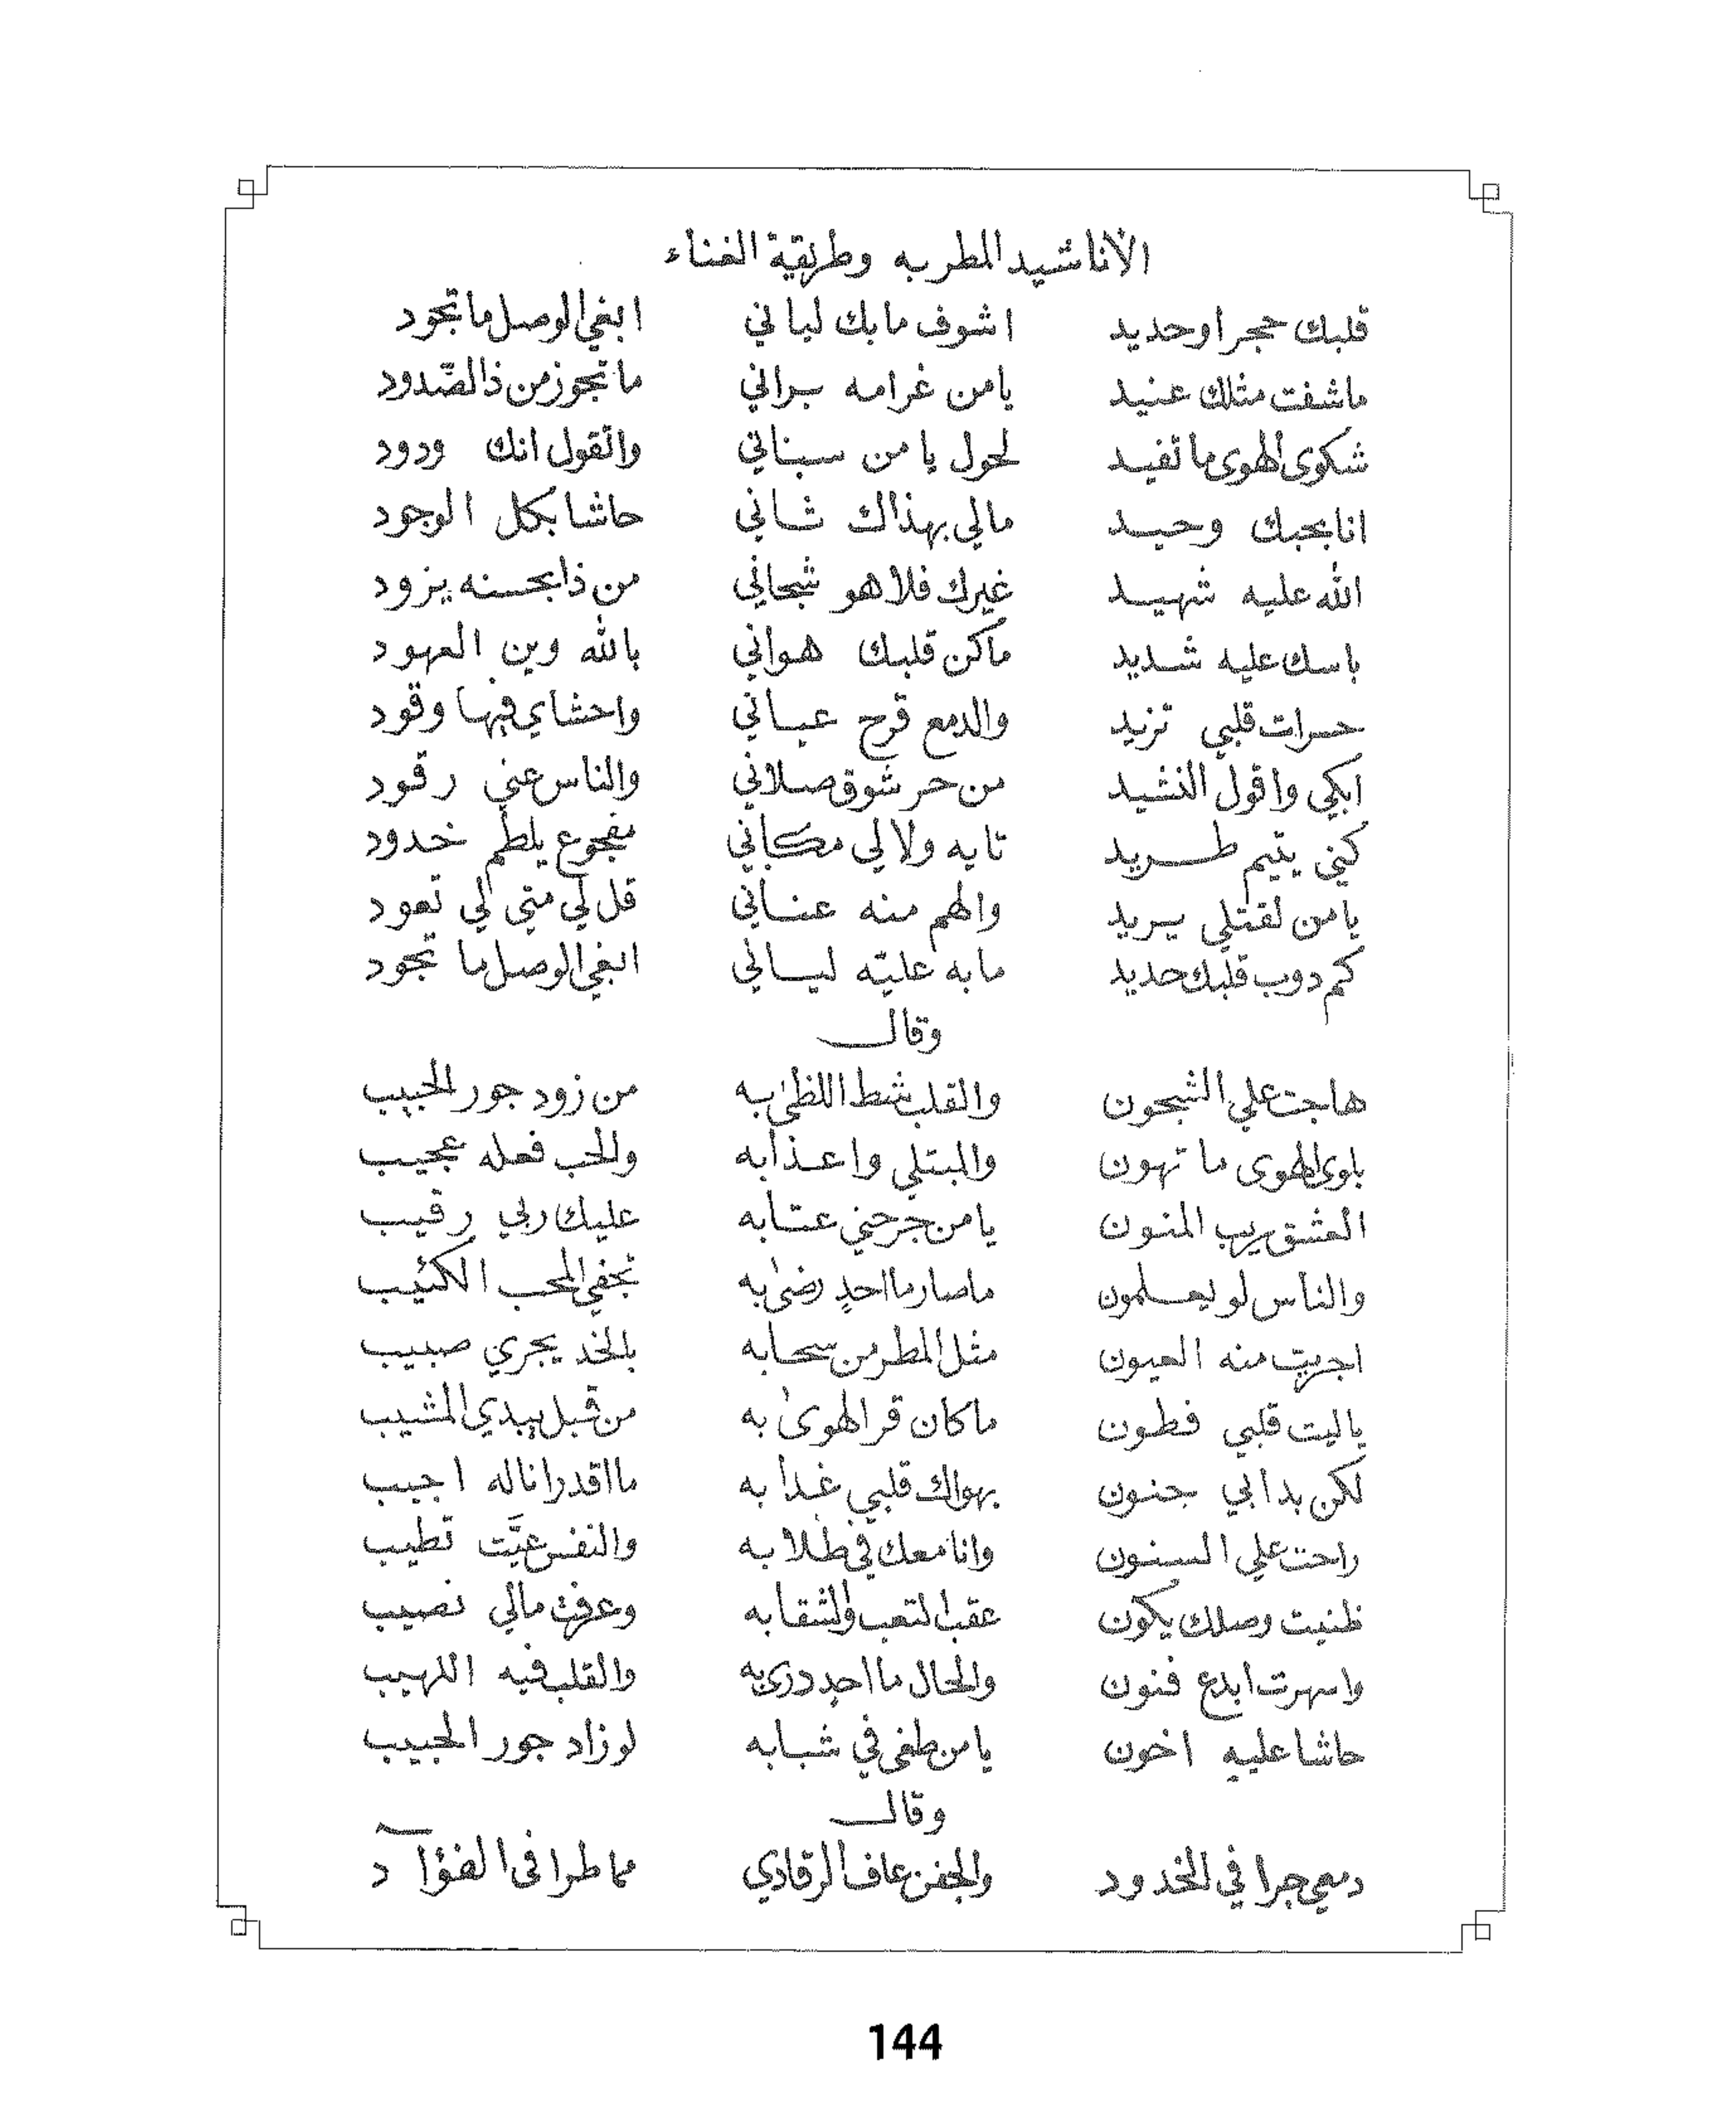 الأناشيد المطربه وطريقية الغناء
قلبك حجر او حديد اشوف مابك لياني ابغي الوصل ما تجود
ماشفت مثلك عنيد يامن غرامه براني ما تجوز من ذا الصّدود
شكوى الهوى ما تفيد لحول يا من سبناتي واتقول انك ودود
انا بحبك وحيد مالي بهذاك شاني حاشا بكل الوجود
الله عليه شهيد غيرك فلا هو شجاني من ذا بحسنه يزود
باسك عليه شديد ماكن قلبك هواني بالله وين العهود
حسرات قلبي تزيد والدمع قرح عياني واحشاي فيها وقود
ابكي واقول النشيد من حر شوق صلاني والناس عني رقود
كني يتيم طريد تايه ولا لي مكاني مفجوع يلطم خدود
يامن لقتلي يريد والهم منه عناني قل لي متي لي تعود
كم دوب قلبك حديد مابه عليّه لياني ابغي الوصل ما تجود
وقال
هاجت علي الشجون والقلب شط اللظىٰ به من زود جور الحبيب
بلوى الهوى ما تهون والمبتلي واعذابه والحب فعله عجيب
العشق ريب المنون يامن جرحني عتابه عليك ربي رقيب
والناس لو يعلمون ماصار ما احدٍ رضىٰ به تجفي المحب الكئيب
اجريت منه العيون مثل المطر من سحابه بالخد يجري صبيب
ياليت قلبي فطون ماكان قر الهوىٰ به من قبل يبدي المشيب
لكن بدا بي جنون بهواك قلبي غدا به ما اقدر اناله اجيب
راحت علي السنون وانا معك في طلابه والنفس عيَّت تطيب
ظنيت وصلك يكون عقب التعب والشقا به وعرفت مالي نصيب
واسهرت ابدع فنون والحال ما احدٍ درى به والقلب فيه اللهيب
حاشا عليه اخون يا من طغى في شبابه لو زاد جور الحبيب
وقال
دمعي جرا في الخدود والجفن عاف الرقادي مما طرا فى الفؤآد
144